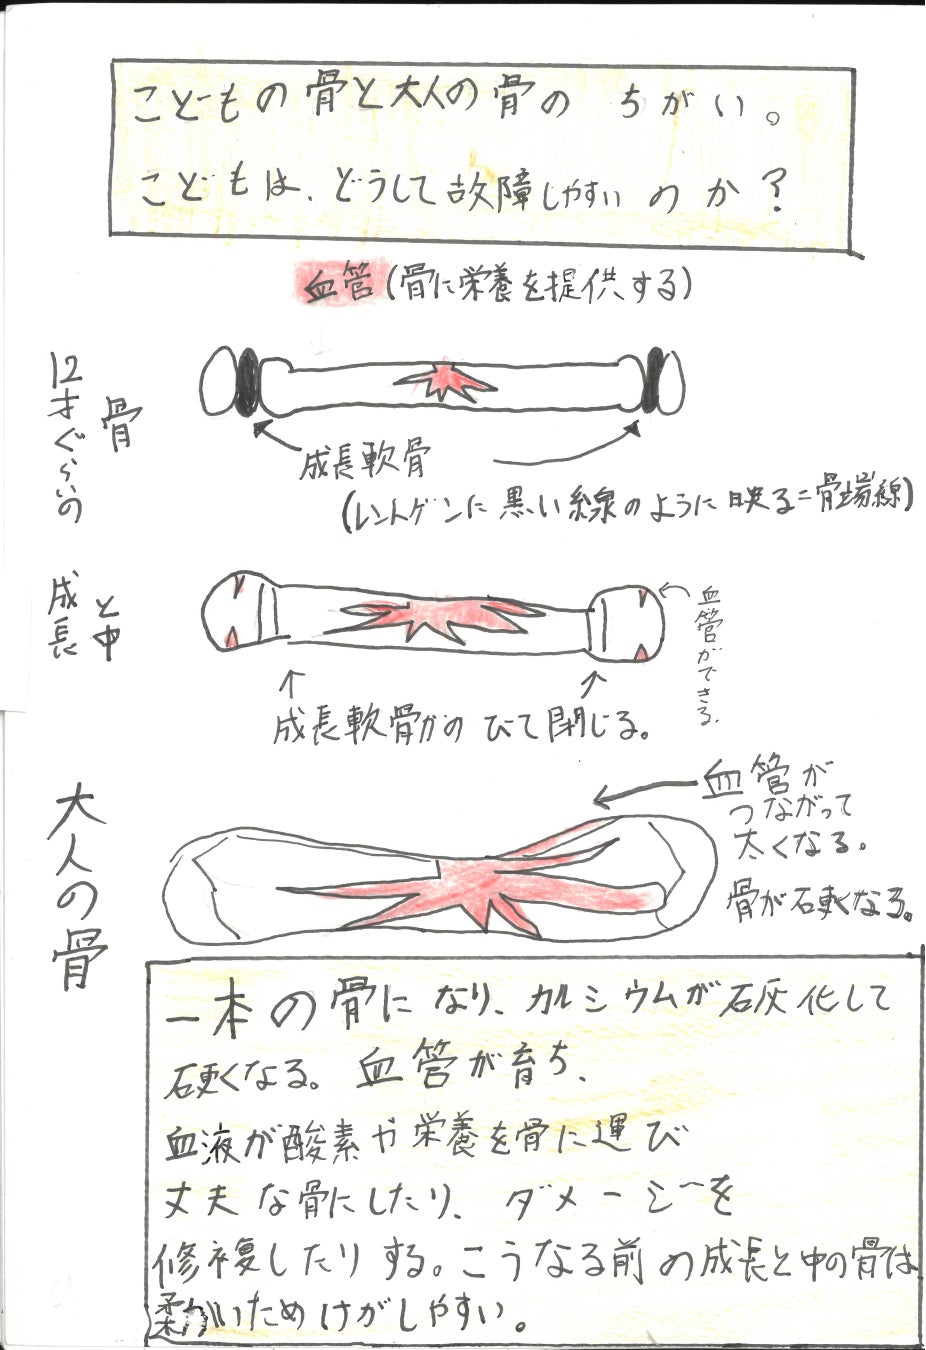 こどもの骨と大人の骨の ちがい。
こどもは、どうして故障しやすいのか?
血管(骨に栄養を提供する)
12才ぐらいの
骨
成長軟骨
(レントゲンに黒い線のように映る=骨端線)
成長
と中
血管ができる。
成長軟骨がのびて閉じる。
大人の骨
血管が
つながって
太くなる。
骨が硬くなる。
一本の骨になり、カルシウムが石灰化して
硬くなる。血管が育ち、
血液が酸素や栄養を骨に運び
丈夫な骨にしたり、ダメージを
修復したりする。こうなる前の成長と中の骨は
柔かいためけがしやすい。